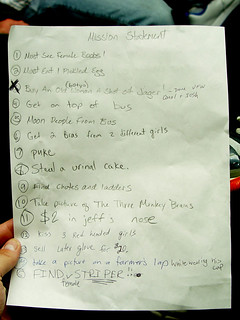 Mission Statement
① Must See Female Boobs!
② Must Eat 1 Pickled Egg
Buy An Old Woman a Shot of Jager!
④ Get on top of bus
⑤ Moon People From Bus
⑥ Get 2 Bras from 2 different girls
⑦ puke
⑧ Steal a urinal cake.
⑨ Find Chutes and ladders
⑩ Take picture of The Three Monkey Brains
⑪ $2 in jeff's nose
⑫ kiss 3 red headed girls
⑬ Sell Later glove for $20
⑭ take a picture on a farmers lap
⑮ FIND STRIPER
female